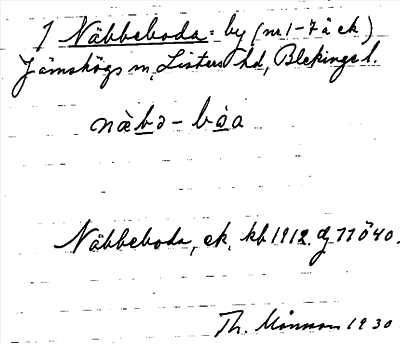 1 Näbbeboda = by (nr 1-7 å ek)
Jämshögs sn, Listers hd, Blekinge l.
näbə - båa
Näbbeboda, ek. kb 1912. dj 11Ö40.
Th. Månsson 1930